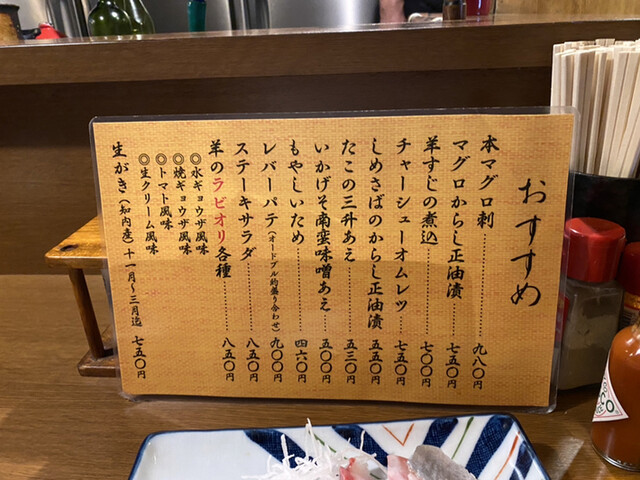 おすすめ
本マグロ刺………九八〇円
マグロからし正油漬……七五〇円
羊すじの煮込………七〇〇円
チャーシューオムレツ……七五〇円
しめさばのからし正油漬……五五〇円
たこの三升あえ………五三〇円
いかげそ南蛮味噌あえ……五〇〇円
もやしいため………四六〇円
レバーパテ(オードブル的盛り合わせ)九〇〇円
ステーキサラダ………八五〇円
羊のラビオリ各種………八五〇円
◎水ギョウザ風味
◎焼ギョウザ風味
◎トマト風味
◎生クリーム風味
生がき(知内産)十一月〜三月迄 七五〇円